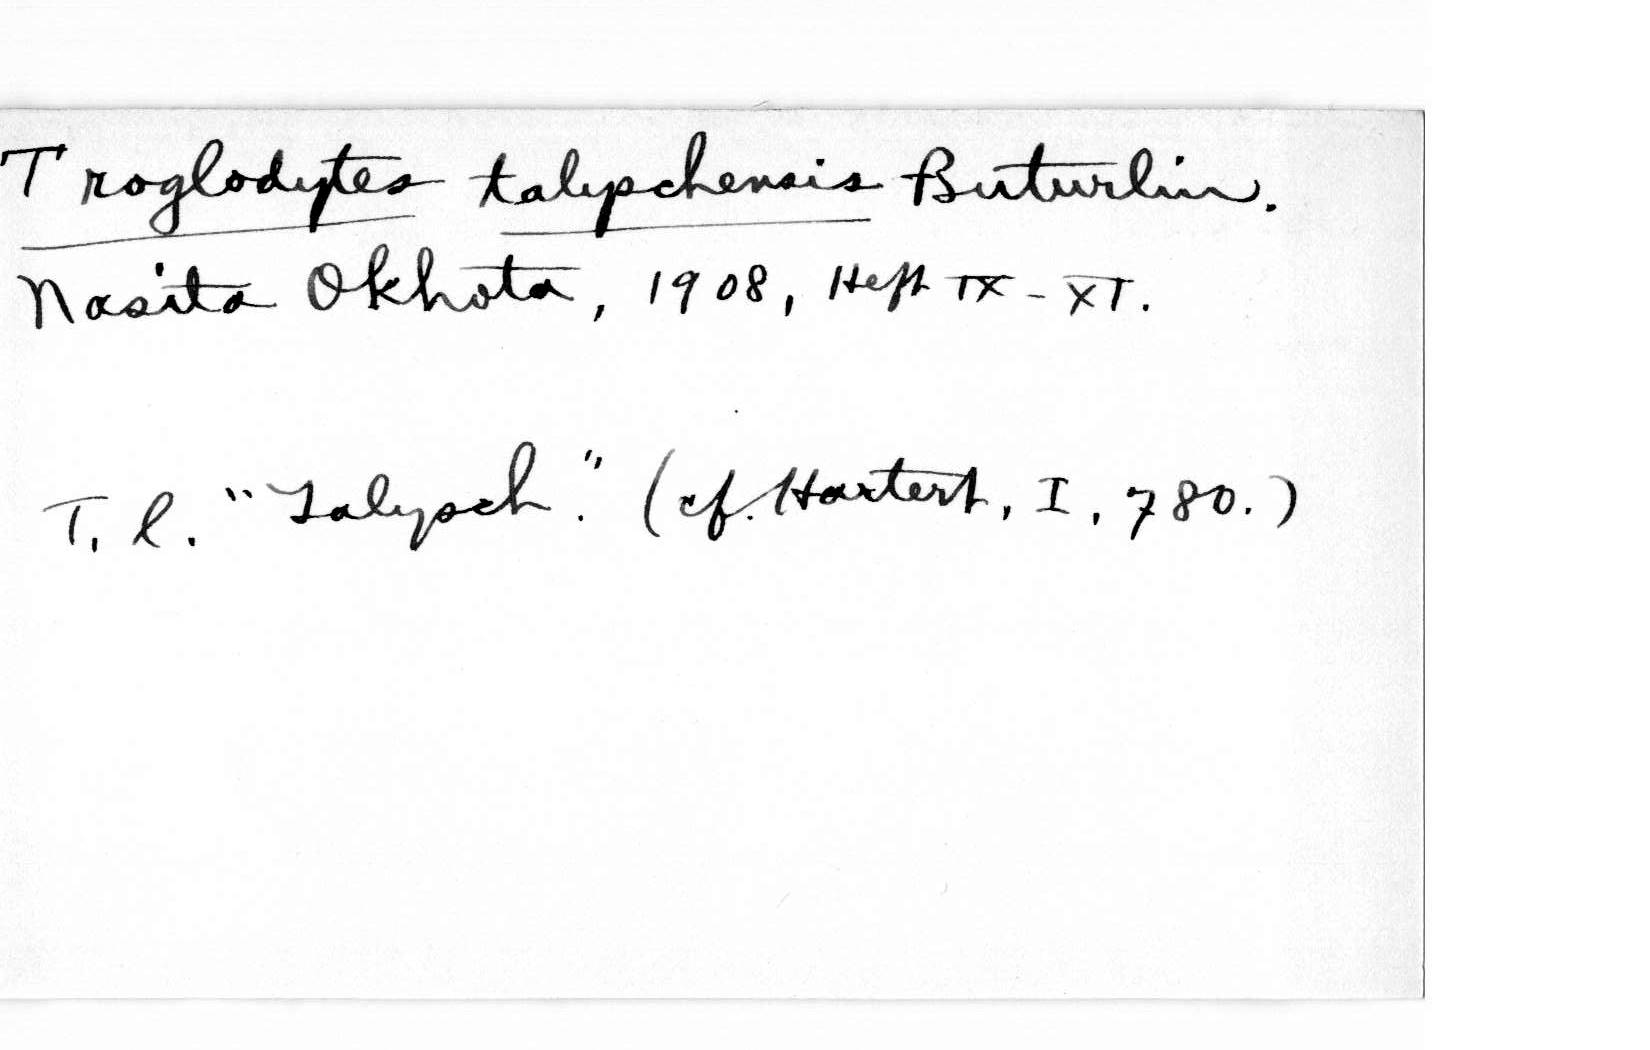 Troglodytes talypschensis Buturlin.
Nasita Okhota, 1908, Heft IX - XI.
T. l. "Talypsch." (cf. Hartert, I, 780.)